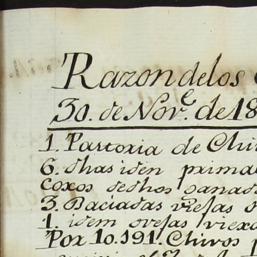 Razon de los
30. de Nov.e de 18
1. Partoria de Chiv
6. dhas iden prima
coxos dedhos ganad
3. Baciadas viejas
1. idem ovejas viexa
Por 10.191. Chivos